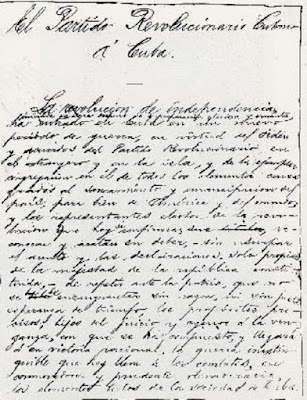 El Partido Revolucionario Cubano
á Cuba.
La revolución de independencia,
ha entrado de en un nuevo
período de guerra, en virtud del orden
y acuerdos del Partido Revolucionario en
el extranjero y en la isla, y de la ejemplar
congregación en él de todos los elementos consa-
grados al saneamiento y emancipacion del
país, para bien de América y del mundo,
y los representantes electos de la revo-
lución que hoy se confirma,
conocen y acatan su deber,—sin usurpar
el acento y las declaraciones, solo propias
de la majestad de la república consti-
tuida,—de repetir ante la patria, que no
se ensangrentar sin razon, ni sin justa
esperanza de triunfo, los propósitos pre-
cisos, hijos del juicio y ajenos á la ven-
ganza, con que se ha compuesto, y llegará
á su victoria racional, la guerra inextin-
guible que hoy lleva á los combates, en
conmovedora y prudente democracia,
los elementos todos de la sociedad de Cuba.